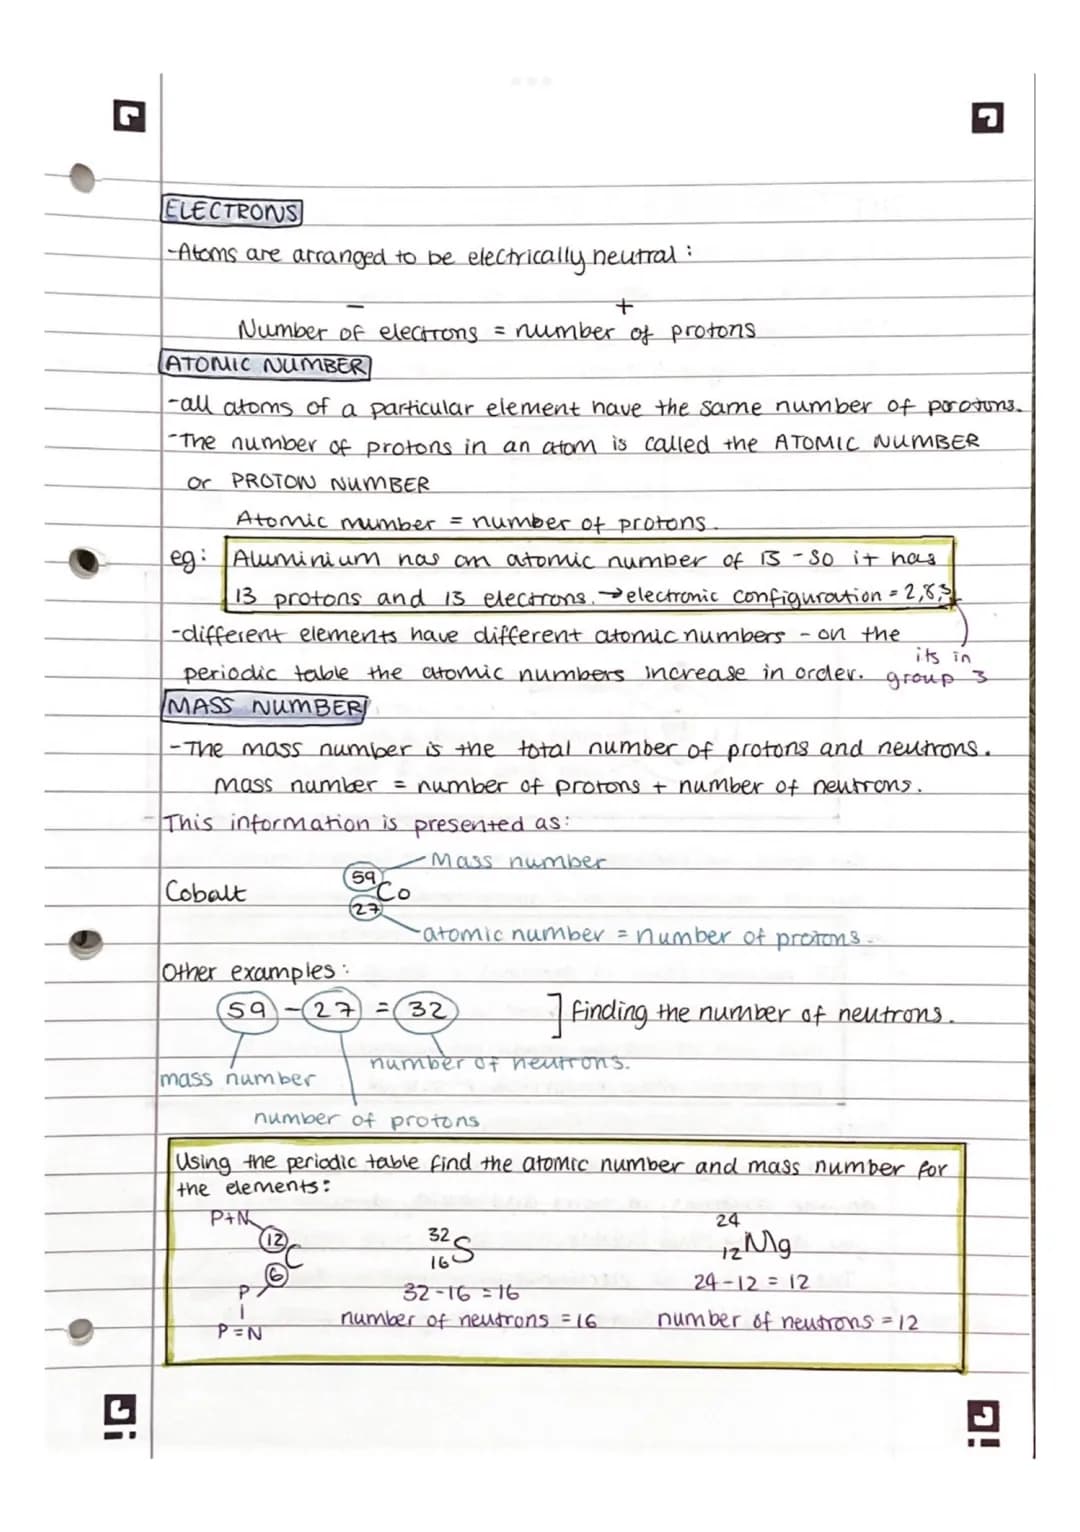 ELECTRONS
-Atoms are arranged to be electrically neutral :
− +
Number of electrons = number of protons
ATOMIC NUMBER
-all atoms of a particular element have the same number of porotons.
-The number of protons in an atom is called the ATOMIC NUMBER
or PROTON NUMBER
Atomic number = number of protons.
eg: Aluminium has an atomic number of 13 - so it has
13 protons and 13 electrons. → electronic configuration = 2,8,3
-different elements have different atomic numbers - on the
its in
periodic table the atomic numbers increase in order. group 3
MASS NUMBER
-The mass number is the total number of protons and neutrons.
mass number = number of protons + number of neutrons.
This information is presented as:
Mass number
59
Cobalt Co
27
atomic number = number of protons.
Other examples :
59 - 27 = 32 ] finding the number of neutrons.
number of neutrons.
mass number
number of protons
Using the periodic table find the atomic number and mass number for
the elements:
P+N 24
12 C 32 S Mg
6 16 12
P 32-16 = 16 24-12 = 12
P=N number of neutrons = 16 number of neutrons = 12